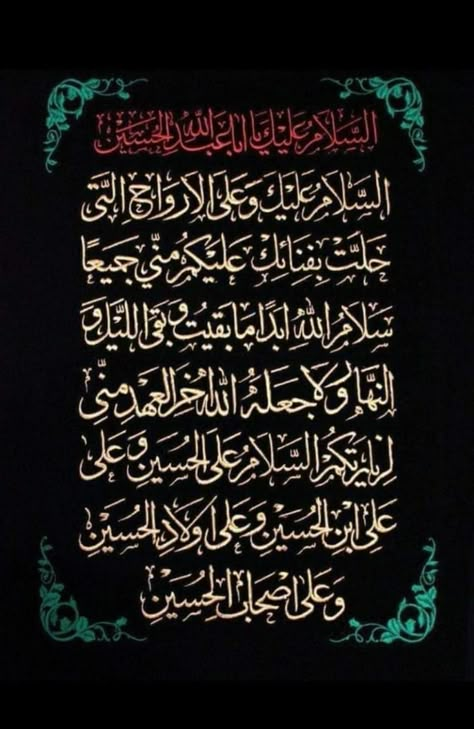 السَّلامُ عَلَيكَ يا ابا عَبدِ اللهِ الحُسَين
السَّلامُ عَلَيكَ وَعَلَى الاَرواحِ الَّتي
حَلَّت بِفِنائِكَ عَلَيكُم مِنّي جَميعًا
سَلامُ اللهِ ابَدًا ما بَقيتُ وَ بَقِيَ اللَّيلُ وَ
النَّهارُ وَلا جَعَلَهُ اللهُ اخِرَ العَهدِ مِنّي
لِزِيارَتِكُم السَّلامُ عَلَى الحُسَينِ وَ عَلى
عَلِي ابنِ الحُسَينِ وَ عَلى اَولادِ الحُسَينِ
وَ عَلى اصحابِ الحُسَينِ